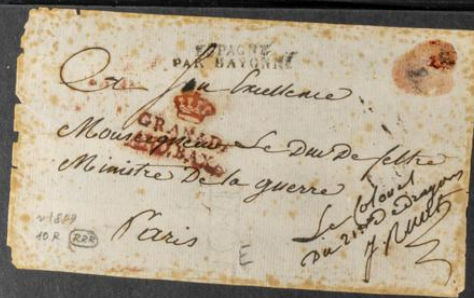 ESPAGNE
PAR BAYONNE
Son Excellence
GRANADA
Monseigneur Le Duc De feltre
Ministre De la guerre
Paris
Le Colonel
du 21
E
10 R RRR